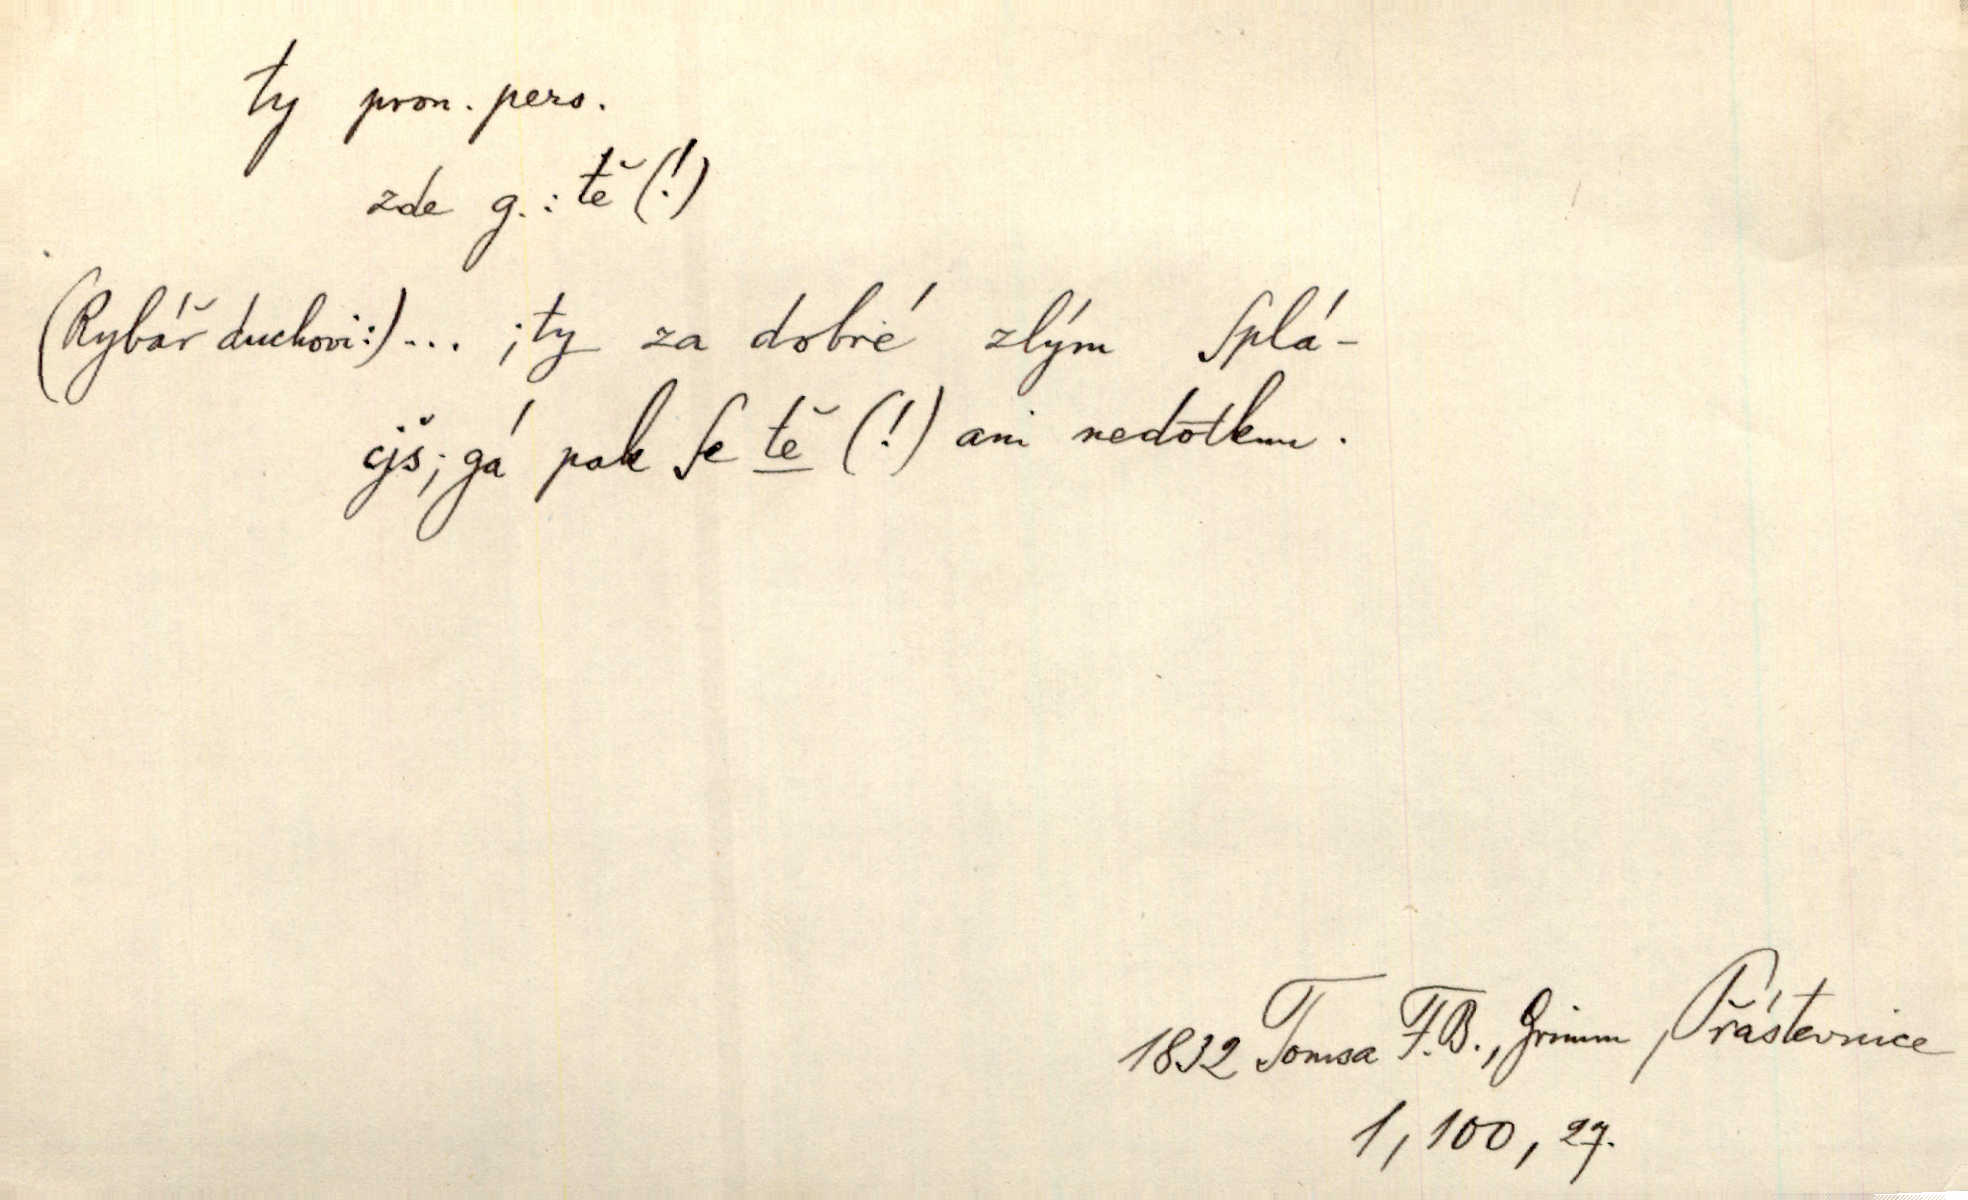 ty pron. pers.
zde g.: tě (!)
(Rybář duchovi:)... ; ty za dobré zlým splá-
cjš; gá pak se tě (!) ani nedotknu.
1832 Tomsa F.B., Grimm, Přástevnice
1, 100, 27.